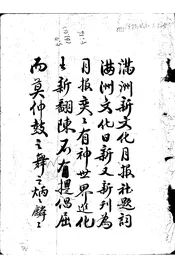 滿洲新文化月报社題詞
滿洲文化日新又新刊為
月报奕々有神世界進化
新翻陳不有提倡屈
而莫仲鼓之舞之炳々麟々